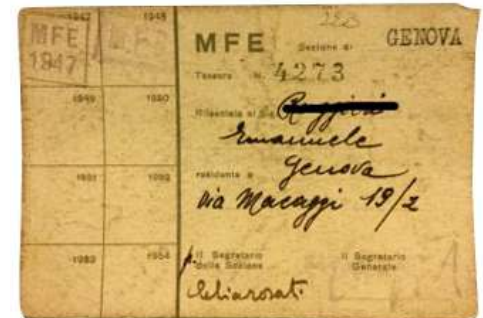 1947 1948
MFE
1947
1949 1950
1951 1952
1953 1954
MFE Sezione di GENOVA
Tessera N. 4273
Rilasciata al Sig.
Emanuele
residente a Genova
via Macaggi 19/2
Il Segretario
della Sezione
Il Segretario
Generale